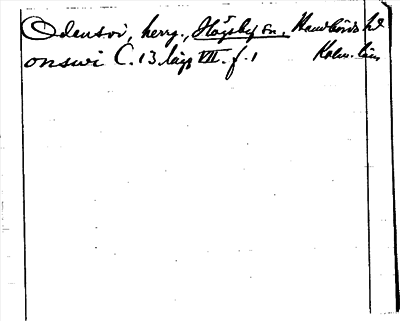 Odensvi, herrg., Högsby sn, Handbörds hd
onswi C. 13 läg VII. f. 1 Kalm. län